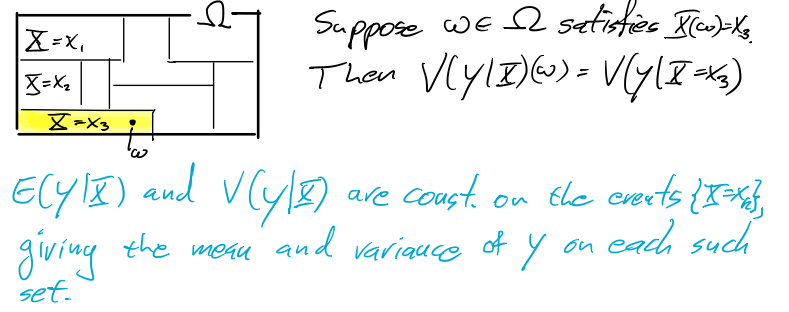 Ω
X=x₁
X=x₂
X=x₃
ω
Suppose ω∈Ω satisfies X(ω)=x₃.
Then V(Y|X)(ω) = V(Y|X=x₃)
E(Y|X) and V(Y|X) are const. on the events {X=xₖ},
giving the mean and variance of Y on each such
set.